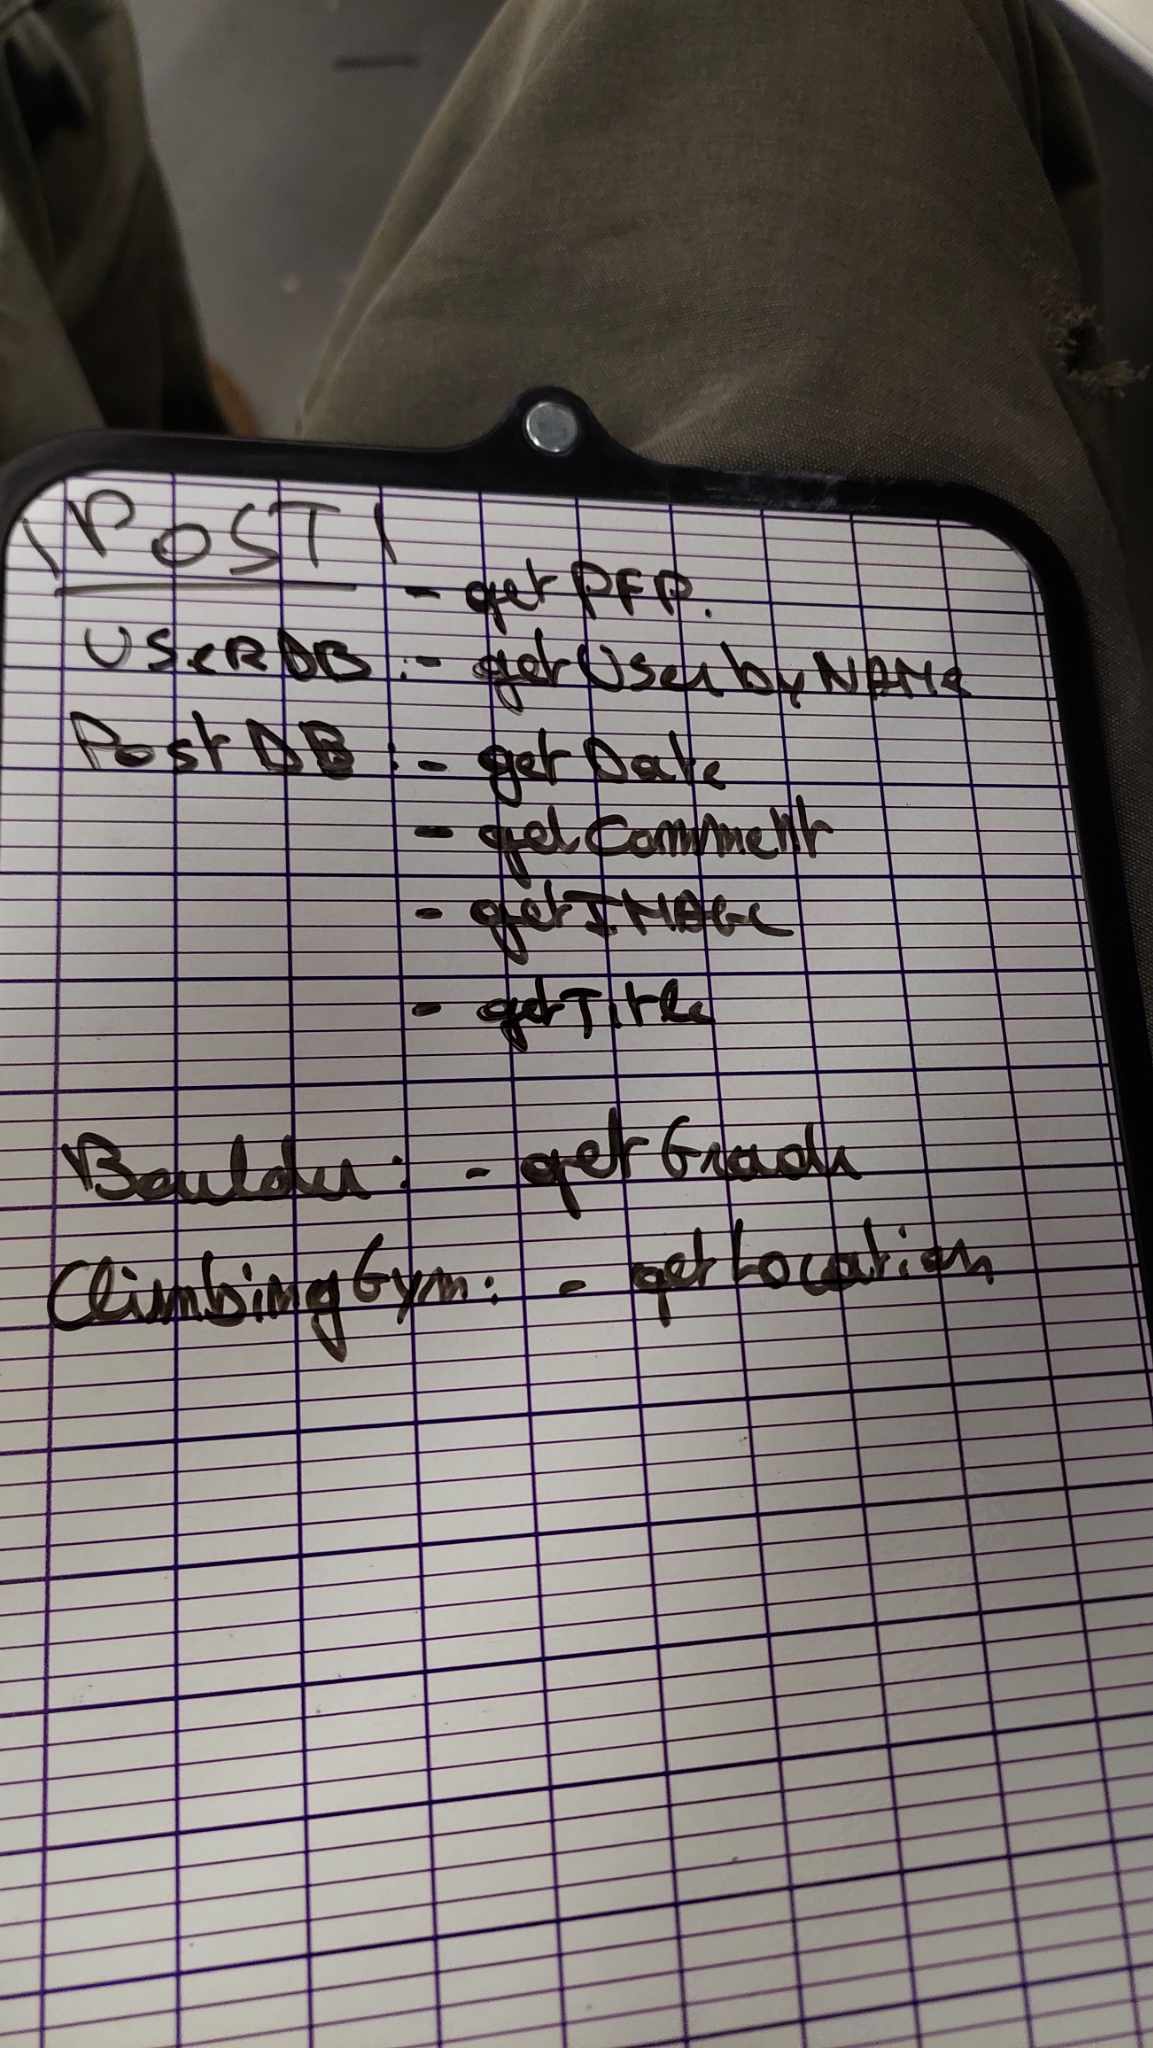 POST
- getPFP.
USeRDB : - getUserbyNAMe
PostDB : - getDate
- getComment
- getIMAGe
- getTitle
Boulder : - getGrade
ClimbingGym : - getLocation